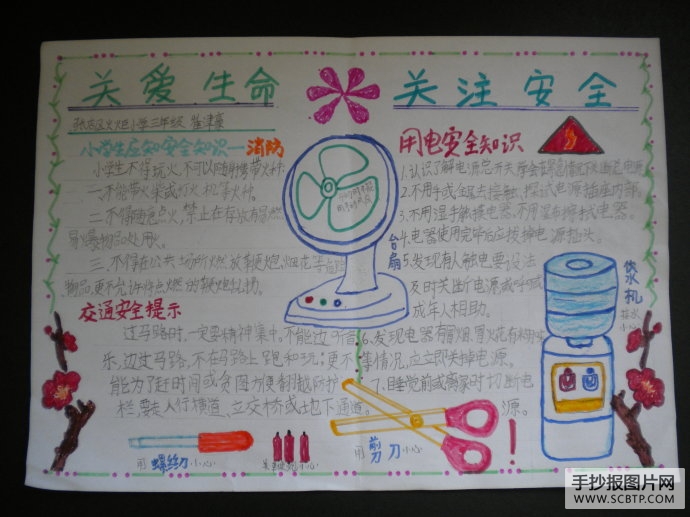 关爱生命 关注安全
张店区火炬小学三年级
小学生应知安全知识—消防
小学生不得玩火,不可以随身携带火种.
一.不能带火柴或打火机等火种.
二.不得随意点火,禁止在存放有易燃
易爆物品处用火.
三.不得在公共场所燃放鞭炮,烟花等
物品,更不允许将点燃的鞭炮乱扔.
交通安全提示
过马路时,一定要精神集中,不能边听音
乐,边过马路,不在马路上跑和玩;更不
能为了赶时间或贪图方便翻越防护
栏,要走人行横道、立交桥或地下通道。
用电安全知识
1.认识了解电源总开关,学会在紧急情况下关断总电源
2.不用手或金属去接触、探试电源插座内部.
3.不用湿手触摸电器,不用湿布擦拭电器。
4.电器使用完毕后应拔掉电源插头。
5.发现有人触电要设法
及时关断电源或呼喊
成年人相助.
6.发现电器有冒烟、冒火花
等情况,应立即关掉电源。
7.睡觉前或离家时切断电
源。
台扇
饮水机
接水
小心
用螺丝刀小心
小心
用剪刀小心
手抄报图片网
WWW.SCBTP.COM